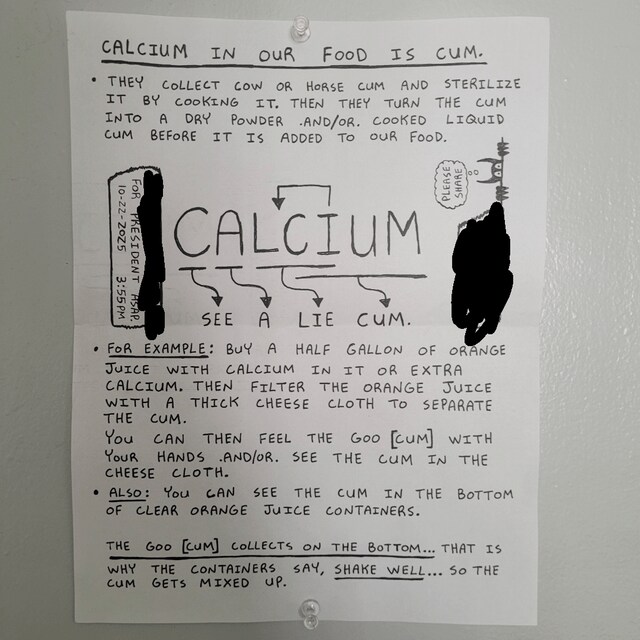 CALCIUM IN OUR FOOD IS CUM.
• THEY COLLECT COW OR HORSE CUM AND STERILIZE
IT BY COOKING IT. THEN THEY TURN THE CUM
INTO A DRY POWDER .AND/OR. COOKED LIQUID
CUM BEFORE IT IS ADDED TO OUR FOOD.
PLEASE
SHARE
FOR PRESIDENT ASAP.
10-22-2025 3:55PM
CALCIUM
SEE A LIE CUM.
• FOR EXAMPLE: BUY A HALF GALLON OF ORANGE
JUICE WITH CALCIUM IN IT OR EXTRA
CALCIUM. THEN FILTER THE ORANGE JUICE
WITH A THICK CHEESE CLOTH TO SEPARATE
THE CUM.
YOU CAN THEN FEEL THE GOO [CUM] WITH
YOUR HANDS .AND/OR. SEE THE CUM IN THE
CHEESE CLOTH.
• ALSO: YOU CAN SEE THE CUM IN THE BOTTOM
OF CLEAR ORANGE JUICE CONTAINERS.
THE GOO [CUM] COLLECTS ON THE BOTTOM... THAT IS
WHY THE CONTAINERS SAY, SHAKE WELL... SO THE
CUM GETS MIXED UP.